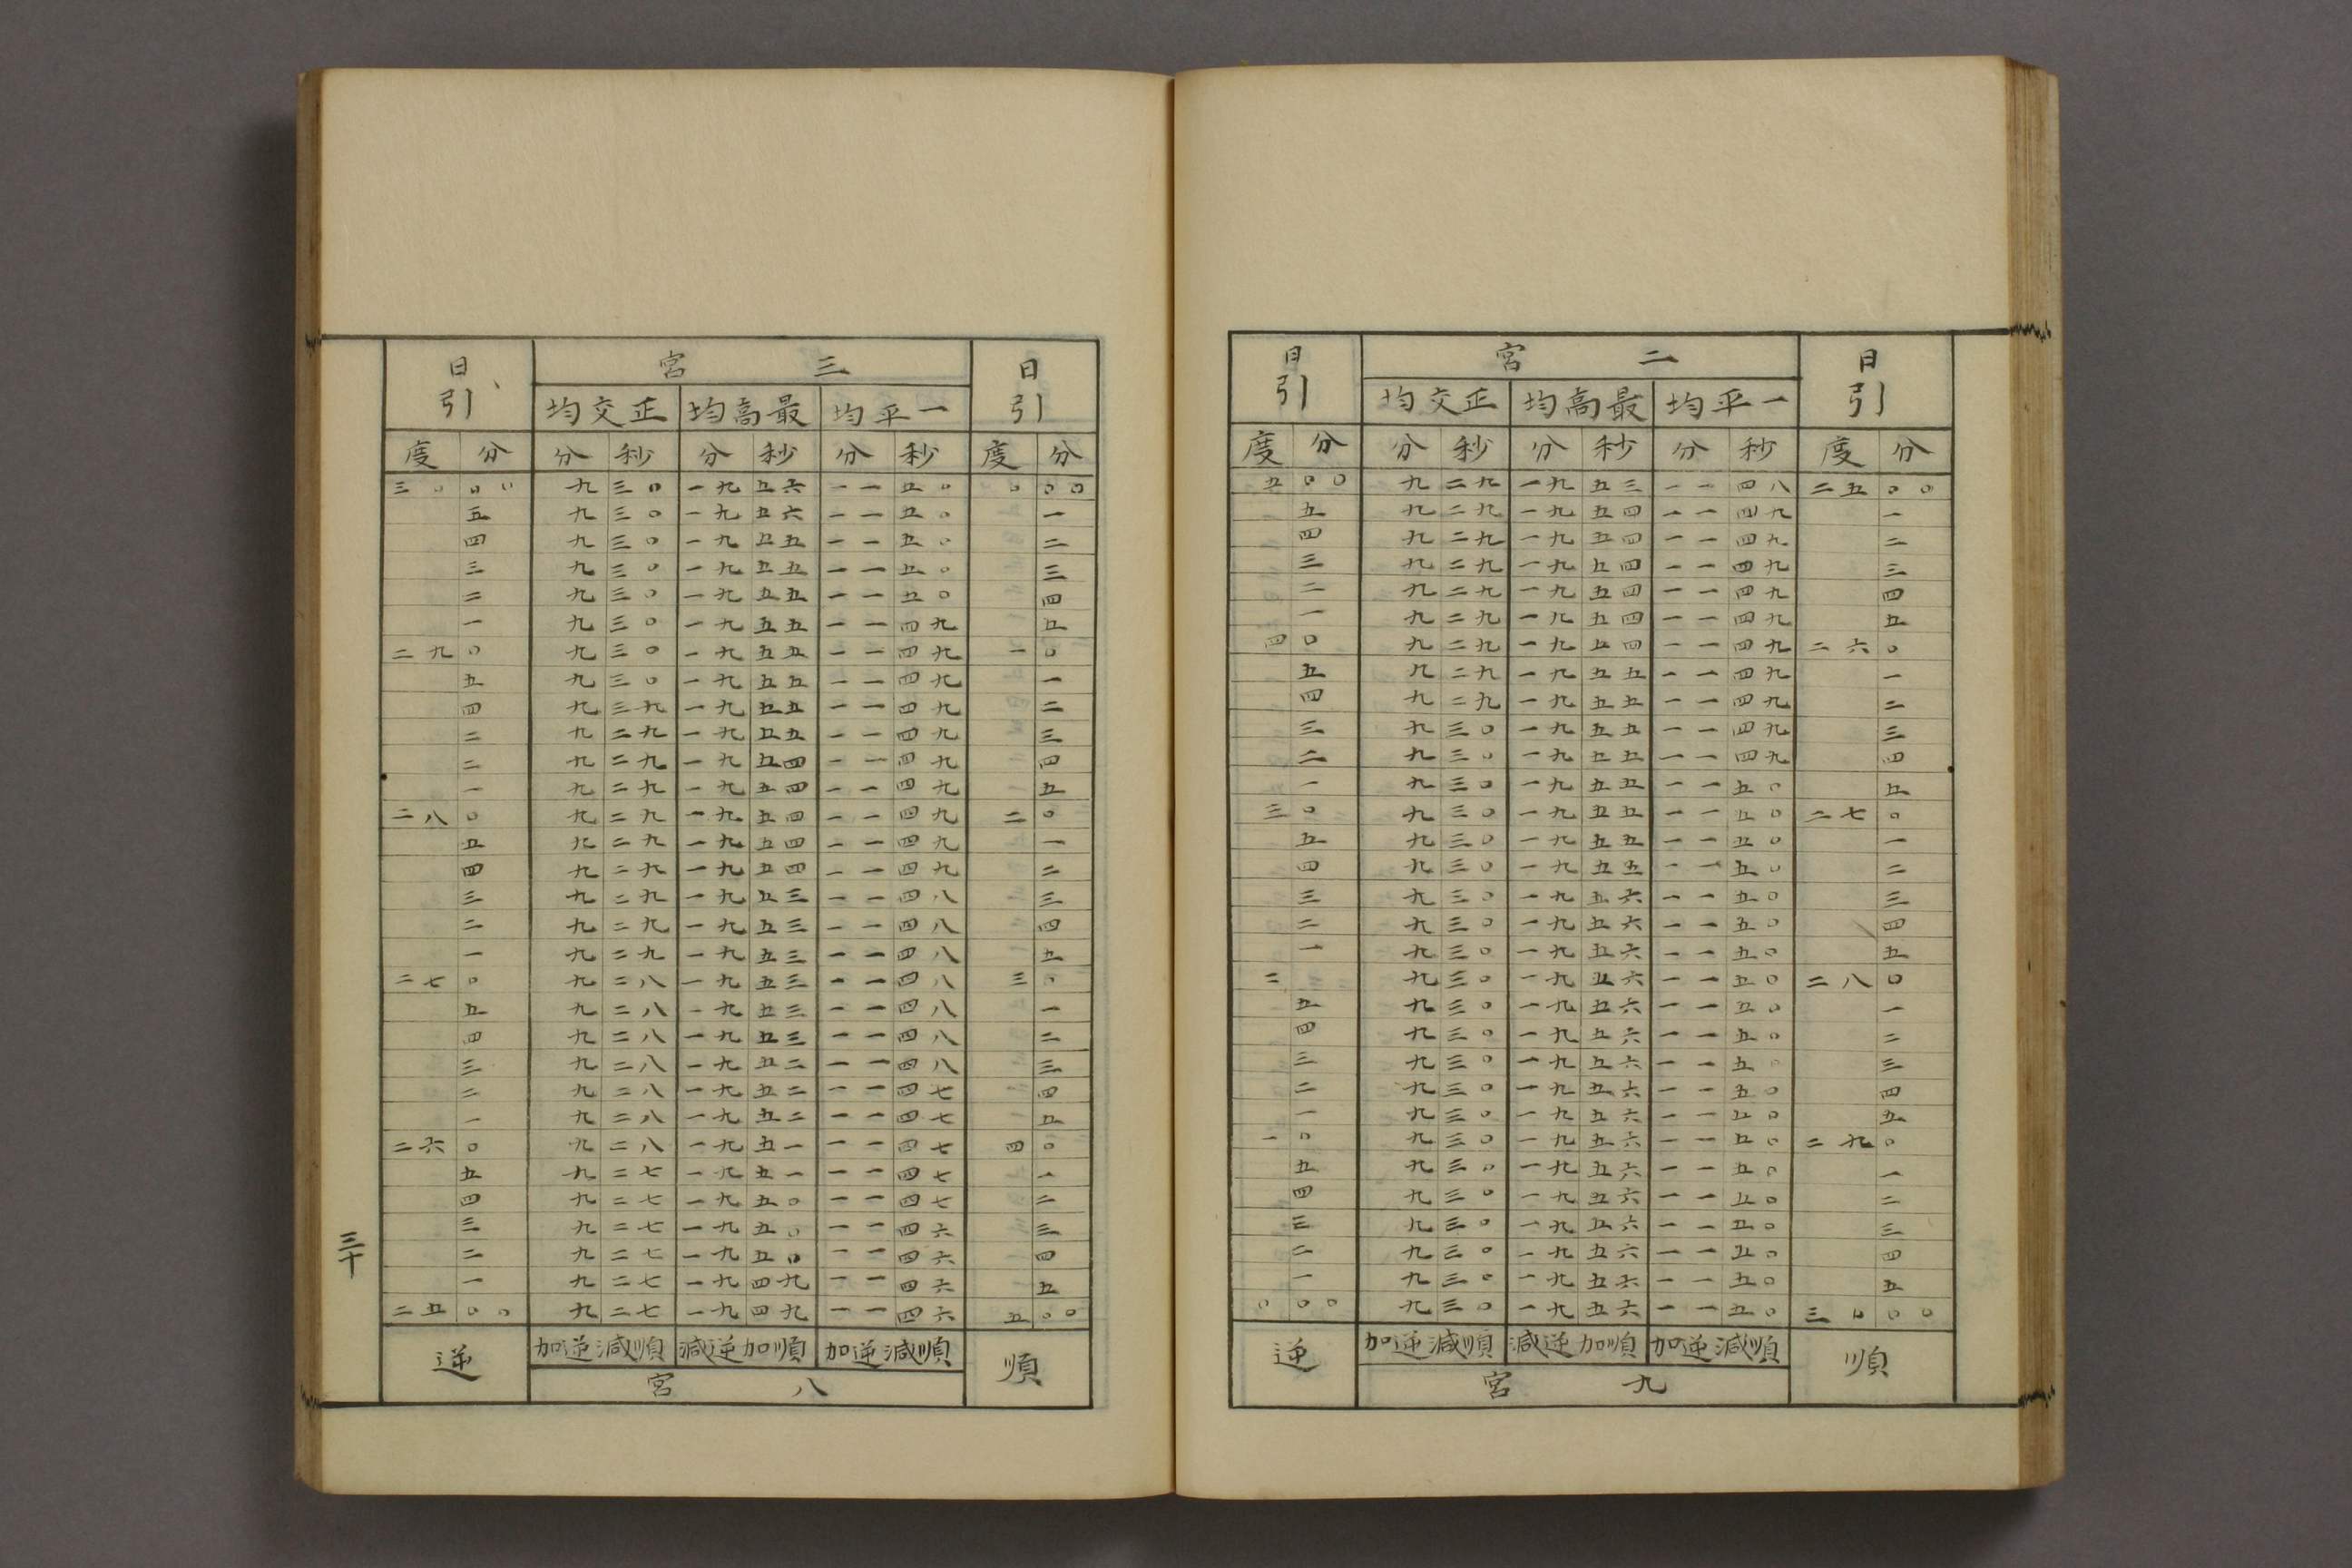 日引 二宮 日引
正交均 最高均 一平均
度 分 分 秒 分 秒 分 秒 度 分
五 〇〇 九 二九 一九 五三 一一 四八 二五 〇〇
五 九 二九 一九 五四 一一 四九 一
四 九 二九 一九 五四 一一 四九 二
三 九 二九 一九 五四 一一 四九 三
二 九 二九 一九 五四 一一 四九 四
一 九 二九 一九 五四 一一 四九 五
四 〇 九 二九 一九 五四 一一 四九 二六 〇
五 九 二九 一九 五五 一一 四九 一
四 九 二九 一九 五五 一一 四九 二
三 九 三〇 一九 五五 一一 四九 三
二 九 三〇 一九 五五 一一 四九 四
一 九 三〇 一九 五五 一一 五〇 五
三 〇 九 三〇 一九 五五 一一 五〇 二七 〇
五 九 三〇 一九 五五 一一 五〇 一
四 九 三〇 一九 五五 一一 五〇 二
三 九 三〇 一九 五六 一一 五〇 三
二 九 三〇 一九 五六 一一 五〇 四
一 九 三〇 一九 五六 一一 五〇 五
二 九 三〇 一九 五六 一一 五〇 二八 〇
五 九 三〇 一九 五六 一一 五〇 一
四 九 三〇 一九 五六 一一 五〇 二
三 九 三〇 一九 五六 一一 五〇 三
二 九 三〇 一九 五六 一一 五〇 四
一 九 三〇 一九 五六 一一 五〇 五
一 〇 九 三〇 一九 五六 一一 五〇 二九 〇
五 九 三〇 一九 五六 一一 五〇 一
四 九 三〇 一九 五六 一一 五〇 二
三 九 三〇 一九 五六 一一 五〇 三
二 九 三〇 一九 五六 一一 五〇 四
一 九 三〇 一九 五六 一一 五〇 五
〇 〇〇 九 三〇 一九 五六 一一 五〇 三〇 〇〇
逆 順減逆加 順加逆減 順減逆加 順
九宮
日引 三宮 日引
正交均 最高均 一平均
度 分 分 秒 分 秒 分 秒 度 分
三〇 〇〇 九 三〇 一九 五六 一一 五〇 〇 〇〇
五 九 三〇 一九 五六 一一 五〇 一
四 九 三〇 一九 五五 一一 五〇 二
三 九 三〇 一九 五五 一一 五〇 三
二 九 三〇 一九 五五 一一 五〇 四
一 九 三〇 一九 五五 一一 四九 五
二九 〇 九 三〇 一九 五五 一一 四九 一 〇
五 九 三〇 一九 五五 一一 四九 一
四 九 三九 一九 五五 一一 四九 二
二 九 二九 一九 五五 一一 四九 三
二 九 二九 一九 五四 一一 四九 四
一 九 二九 一九 五四 一一 四九 五
二八 〇 九 二九 一九 五四 一一 四九 二 〇
五 九 二九 一九 五四 一一 四九 一
四 九 二九 一九 五四 一一 四九 二
三 九 二九 一九 五三 一一 四八 三
二 九 二九 一九 五三 一一 四八 四
一 九 二九 一九 五三 一一 四八 五
二七 〇 九 二八 一九 五三 一一 四八 三 〇
五 九 二八 一九 五三 一一 四八 一
四 九 二八 一九 五三 一一 四八 二
三 九 二八 一九 五二 一一 四八 三
二 九 二八 一九 五二 一一 四七 四
一 九 二八 一九 五二 一一 四七 五
二六 〇 九 二八 一九 五一 一一 四七 四 〇
五 九 二七 一九 五一 一一 四七 一
四 九 二七 一九 五〇 一一 四七 二
三 九 二七 一九 五〇 一一 四六 三
二 九 二七 一九 五〇 一一 四六 四
一 九 二七 一九 四九 一一 四六 五
二五 〇〇 九 二七 一九 四九 一一 四六 五 〇〇
逆 順減逆加 順加逆減 順減逆加 順
八宮
三十